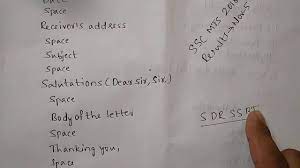 Date
Space
Receiver's address
Space
Subject
Space
Salutations (Dear sir, Sir,)
Space
Body of the letter
Space
Thanking you,
Space
SSC MTS 2018
Result → Nov 5
SDRSSBT